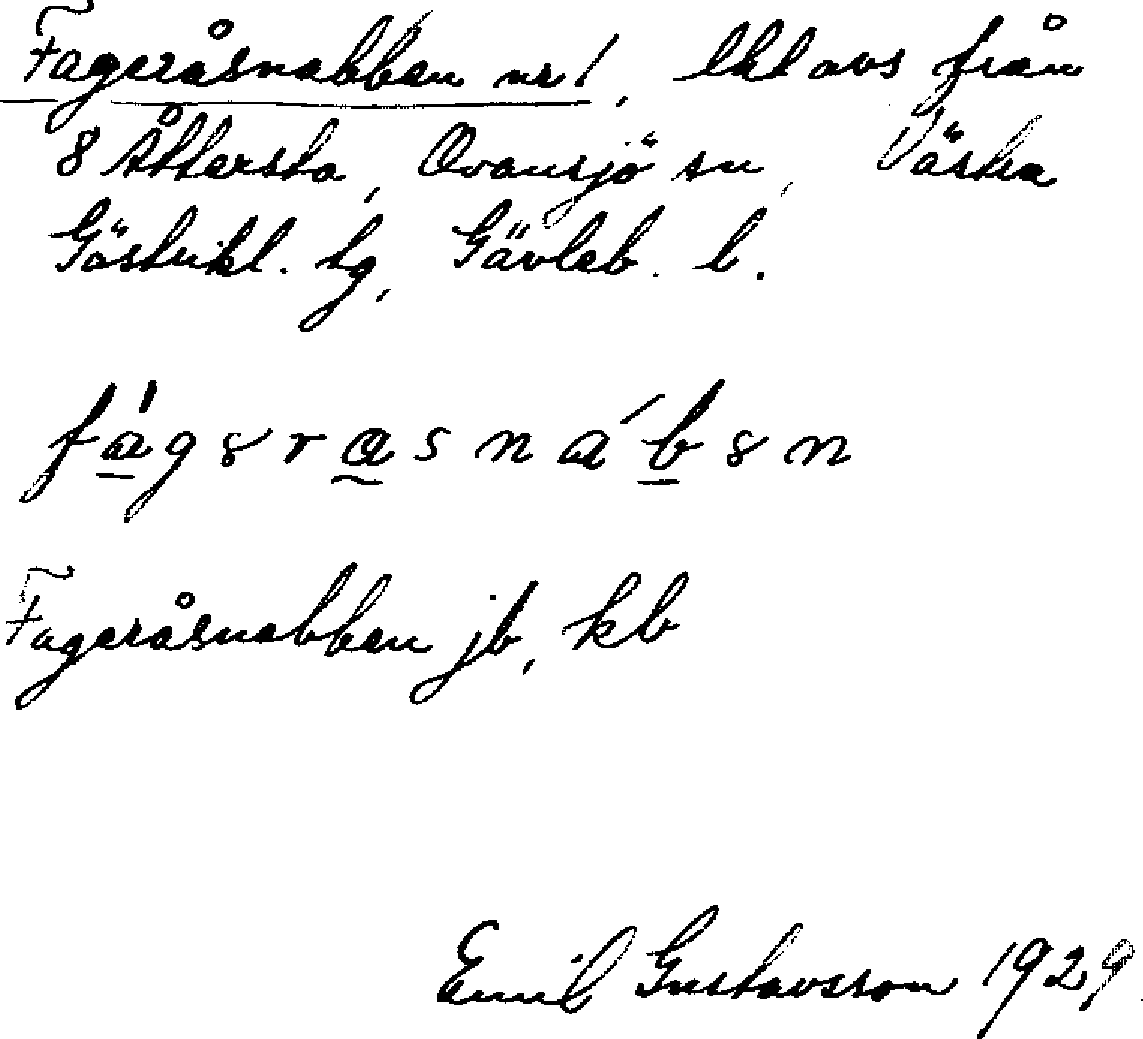 Fageråsnabben nr 1, lht avs från
8 Åttersta, Ovansjö sn, Västra
Gästrikl. tg, Gävleb. l.
fág𝑠rasnáb𝑠n
Fageråsnabben jb, kb
Emil Gustavsson 1929